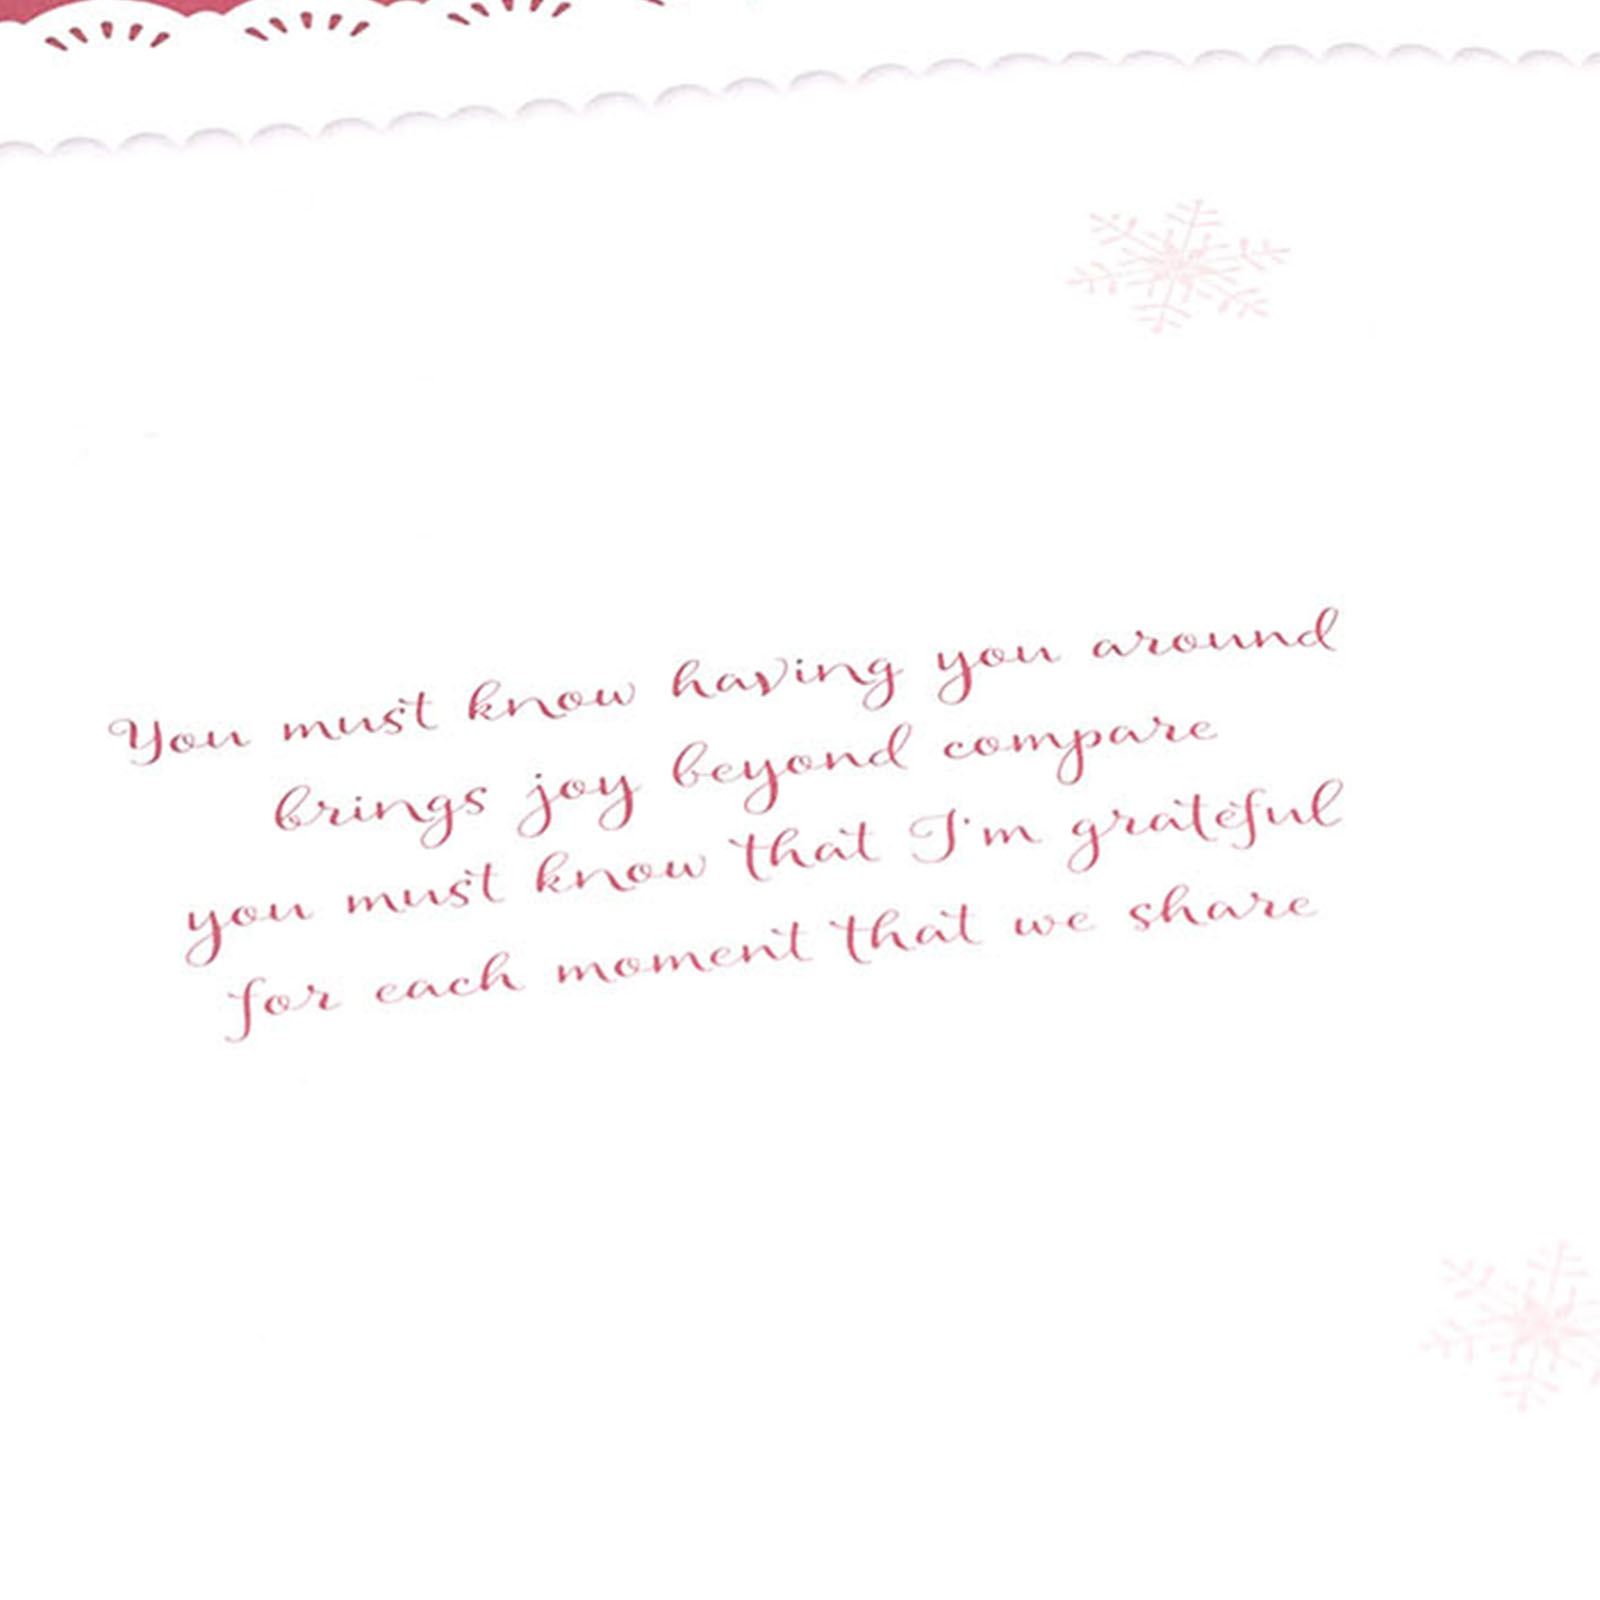 You must know having you around
brings joy beyond compare
you must know that I'm grateful
for each moment that we share